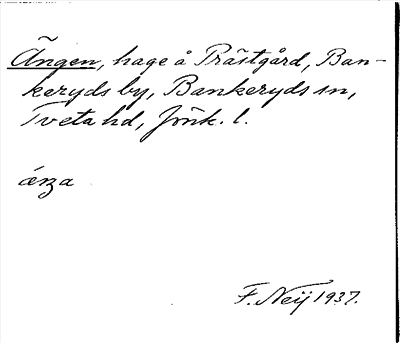 Ängen, hage å Prästgård, Ban-
keryds by, Bankeryds sn,
Tveta hd, Jönk. l.
F. Neij 1937.